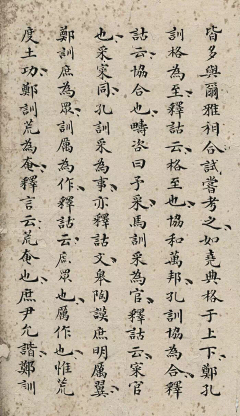 皆多與爾雅相合試嘗考之如堯典格于上下鄭孔
訓格為至釋詁云格至也協和萬邦孔訓協為合釋
詁云協合也疇咨曰予采馬訓采為官釋詁云寀官
也采寀同孔訓采為事亦釋詁文皋陶謨庶明厲翼
鄭訓庶為眾訓厲為作釋詁云庶眾也厲作也惟荒
度土功鄭訓荒為奄釋言云荒奄也庶尹允諧鄭訓